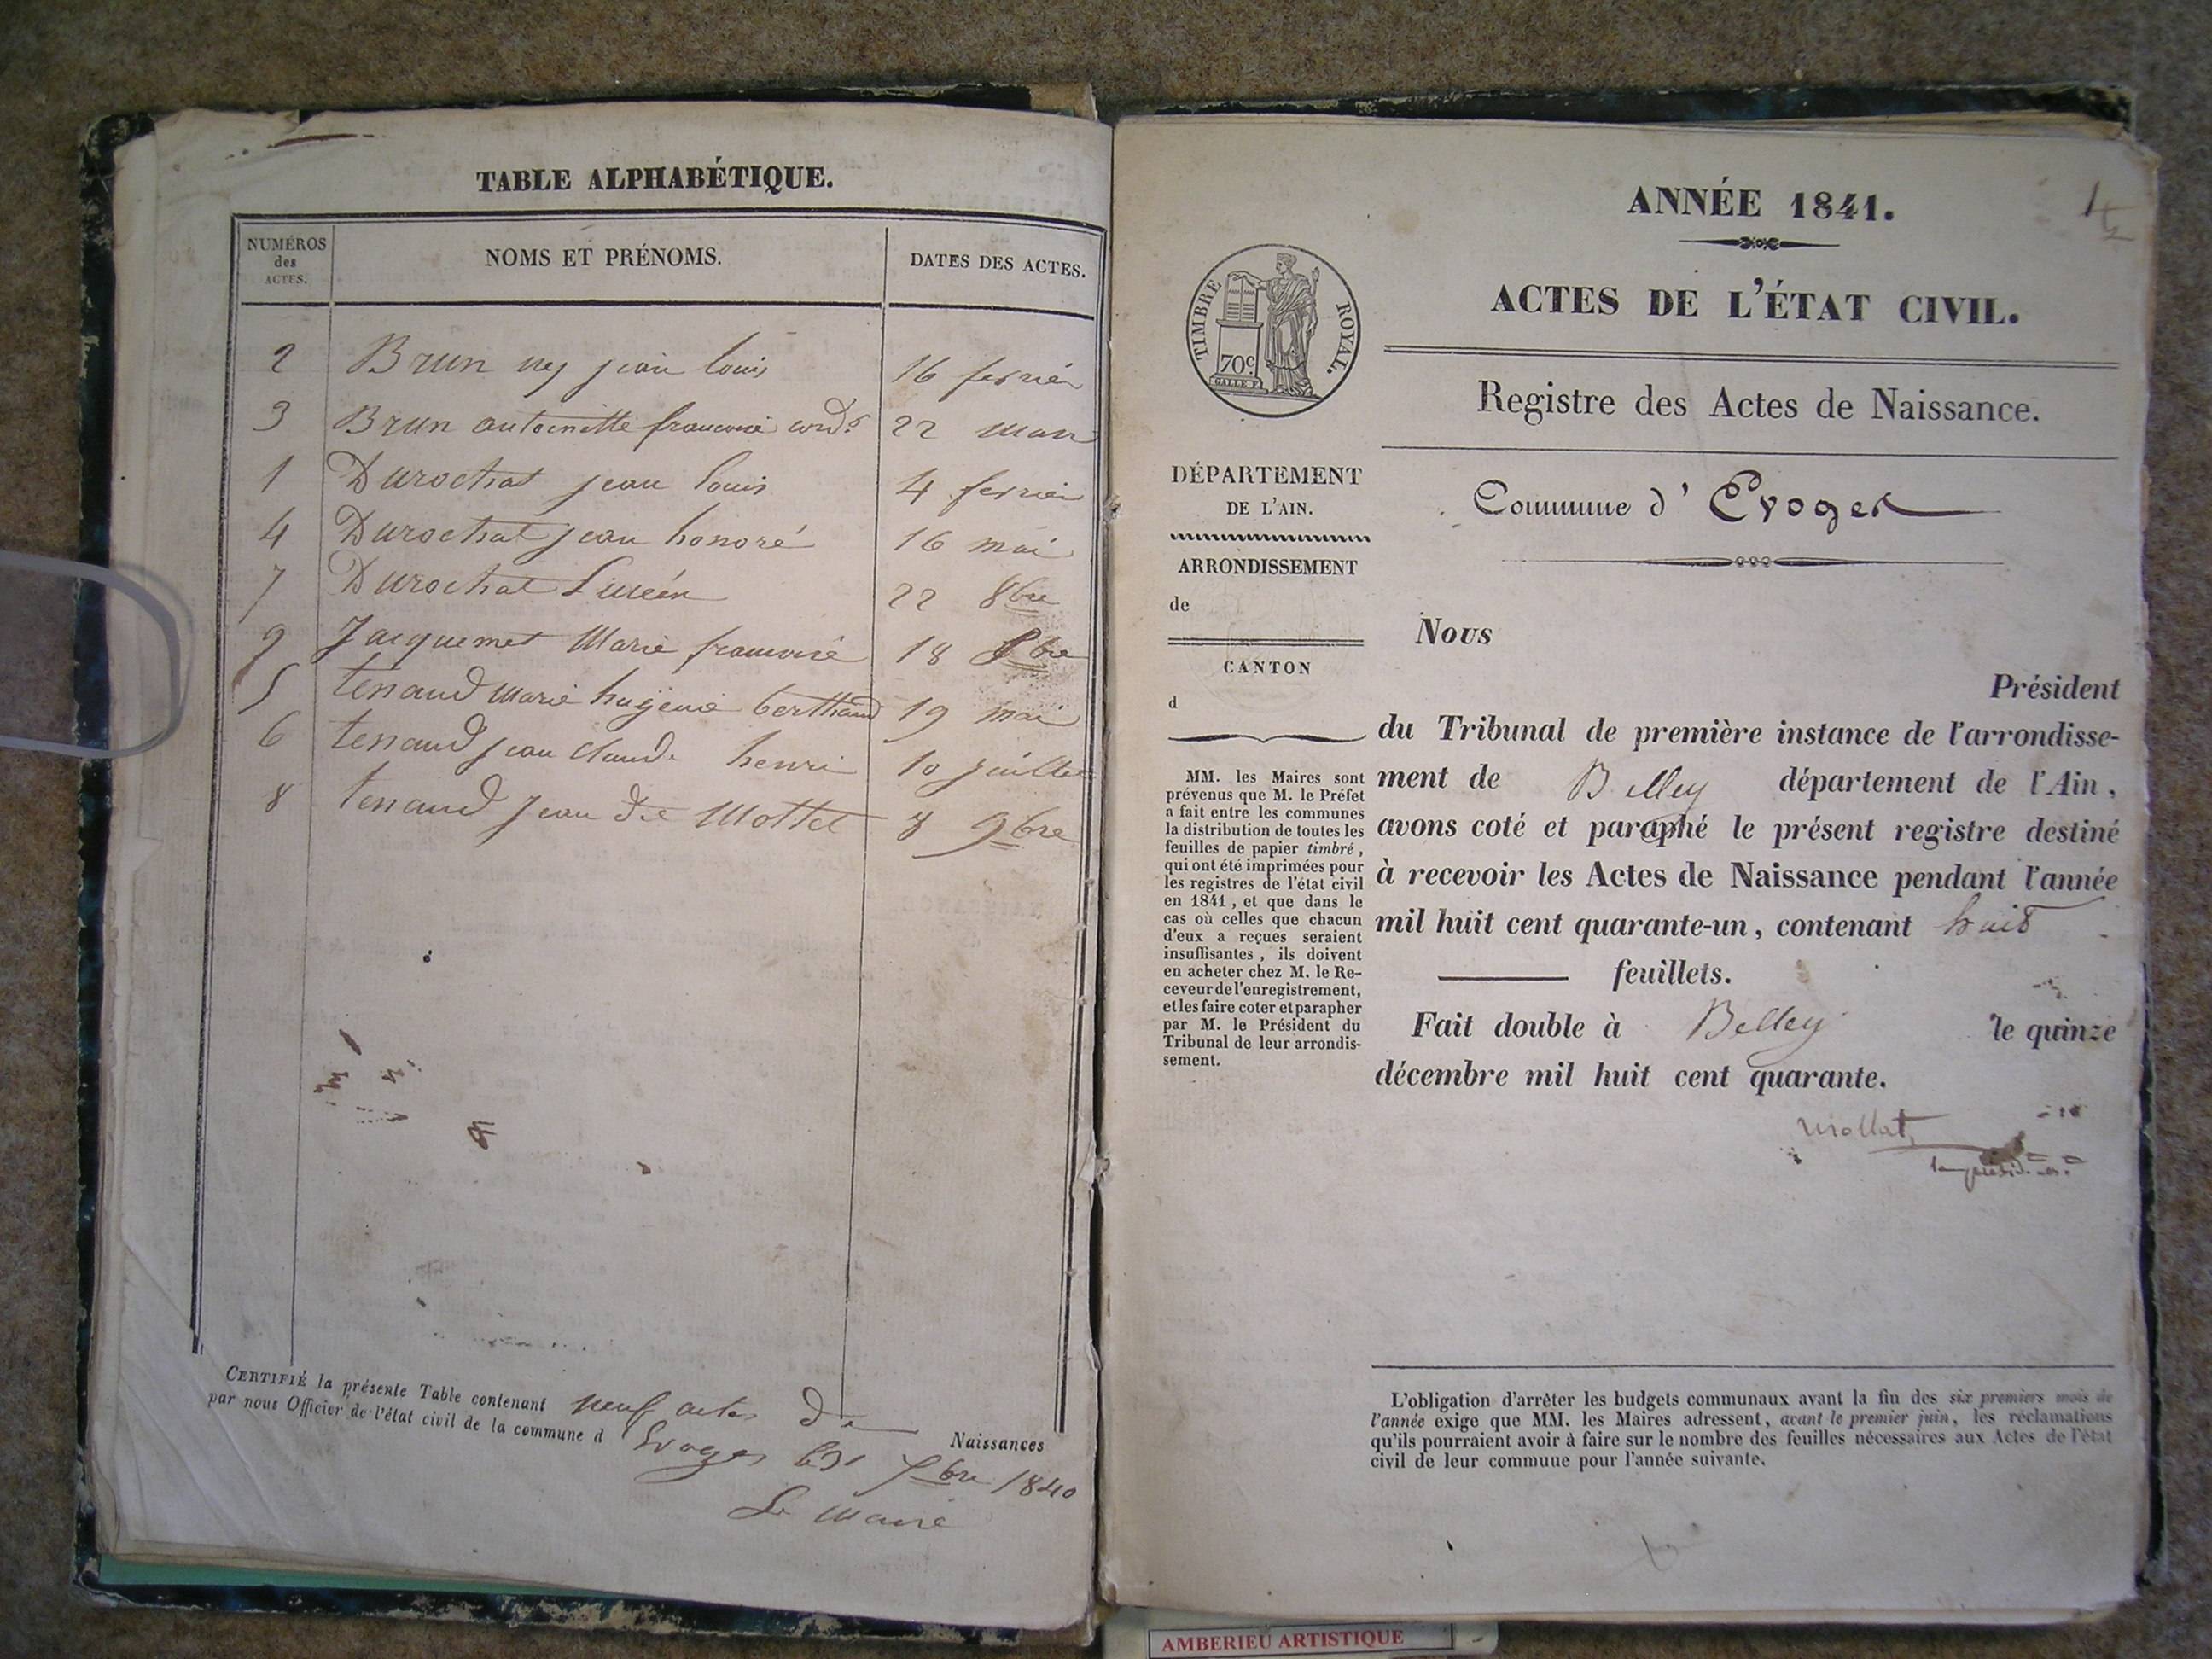 TABLE ALPHABÉTIQUE.
NUMÉROS des ACTES. NOMS ET PRÉNOMS. DATES DES ACTES.
2 Brun ney jean louis 16 fevrier
3 Brun antoinette francoise 22 mars
1 Durochat jean louis 4 fevrier
4 Durochat jean honoré 16 mai
7 Durochat Lucién 22 8bre
9 Jacquemet Marie francoise 18 Xbre
5 tenaud Marie hugenie berthaud 19 mai
6 tenaud jean claude henri 10 juillet
8 tenaud jean dit Mottet 8 9bre
CERTIFIÉ la présente Table contenant neuf actes de Naissances
par nous Officier de l'état civil de la commune d Evoges le 31 Xbre 1840
Le Maire
ANNÉE 1841.
ACTES DE L'ÉTAT CIVIL.
TIMBRE ROYAL.
70c.
GALLE F.
Registre des Actes de Naissance.
DÉPARTEMENT
DE L'AIN.
Commune d' Evoges
ARRONDISSEMENT
de
CANTON
d
MM. les Maires sont
prévenus que M. le Préfet
a fait entre les communes
la distribution de toutes les
feuilles de papier timbré,
qui ont été imprimées pour
les registres de l'état civil
en 1841, et que dans le
cas où celles que chacun
d'eux a reçues seraient
insuffisantes, ils doivent
en acheter chez M. le Re-
ceveur de l'enregistrement,
et les faire coter et parapher
par M. le Président du
Tribunal de leur arrondis-
sement.
Nous
Président
du Tribunal de première instance de l'arrondisse-
ment de Belley département de l'Ain,
avons coté et paraphé le présent registre destiné
à recevoir les Actes de Naissance pendant l'année
mil huit cent quarante-un, contenant huit
feuillets.
Fait double à Belley le quinze
décembre mil huit cent quarante.
L'obligation d'arrêter les budgets communaux avant la fin des six premiers mois de
l'année exige que MM. les Maires adressent, avant le premier juin, les réclamations
qu'ils pourraient avoir à faire sur le nombre des feuilles nécessaires aux Actes de l'état
civil de leur commune pour l'année suivante.
AMBERIEU ARTISTIQUE